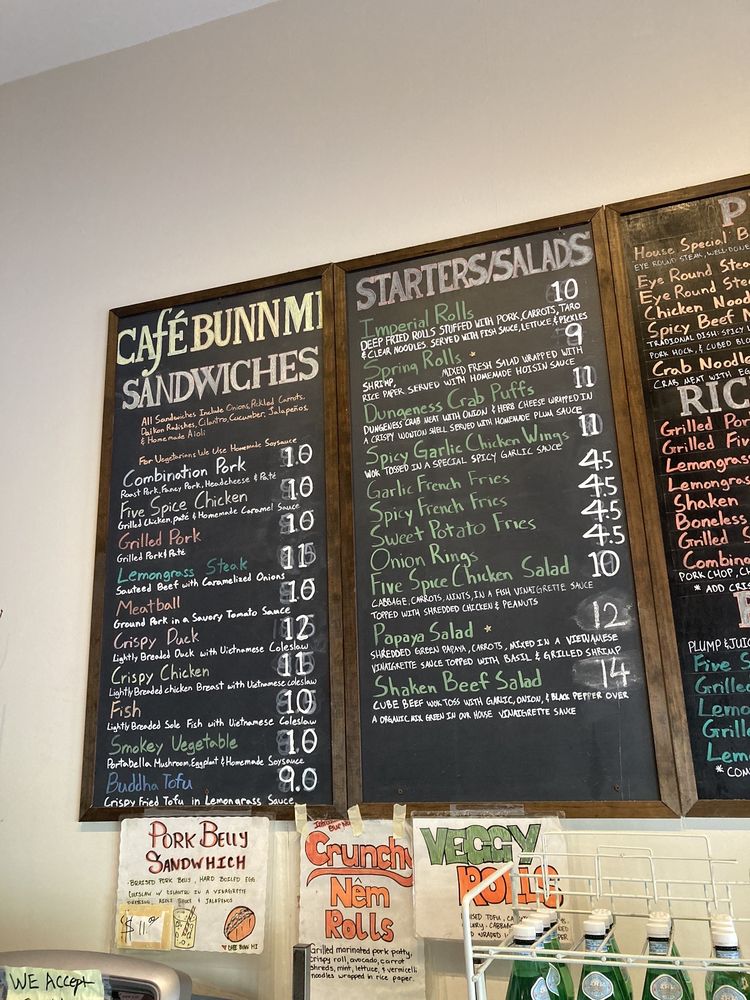 CAFÉ BUNN MI
SANDWICHES
All Sandwiches Include Onions, Pickled Carrots,
Daikon Radishes, Cilantro, Cucumber, Jalapeños,
& Homemade Aioli
For Vegetarians We Use Homemade Soysauce
Combination Pork 10
Roast Pork, Fancy Pork, Headcheese & Paté
Five Spice Chicken 10
Grilled Chicken, paté & Homemade Caramel Sauce
Grilled Pork 10
Grilled Pork & Paté
Lemongrass Steak 11
Sauteed Beef with Caramelized Onions
Meatball 10
Ground Pork in a Savory Tomato Sauce
Crispy Duck 12
Lightly Breaded Duck with Vietnamese Coleslaw
Crispy Chicken 11
Lightly Breaded chicken Breast with Vietnamese coleslaw
Fish 10
Lightly Breaded Sole Fish with Vietnamese Coleslaw
Smokey Vegetable 10
Portabella Mushroom, Eggplant & Homemade Soysauce
Buddha Tofu 9.0
Crispy Fried Tofu in Lemongrass Sauce
STARTERS/SALADS
Imperial Rolls 10
DEEP FRIED ROLLS STUFFED WITH PORK, CARROTS, TARO
& CLEAR NOODLES SERVED WITH FISH SAUCE, LETTUCE & PICKLES
Spring Rolls * 9
SHRIMP, MIXED FRESH SALAD WRAPPED WITH
RICE PAPER. SERVED WITH HOMEMADE HOISIN SAUCE
Dungeness Crab Puffs 11
DUNGENESS CRAB MEAT WITH ONION & HERB CHEESE WRAPPED IN
A CRISPY WONTON SHELL SERVED WITH HOMEMADE PLUM SAUCE
Spicy Garlic Chicken Wings 11
WOK TOSSED IN A SPECIAL SPICY GARLIC SAUCE
Garlic French Fries 4.5
Spicy French Fries 4.5
Sweet Potato Fries 4.5
Onion Rings
Five Spice Chicken Salad 10
CABBAGE, CARROTS, MINTS, IN A FISH VINAIGRETTE SAUCE
TOPPED WITH SHREDDED CHICKEN & PEANUTS
Papaya Salad * 12
SHREDDED GREEN PAPAYA, CARROTS, MIXED IN A VIETNAMESE
VINAIGRETTE SAUCE TOPPED WITH BASIL & GRILLED SHRIMP
Shaken Beef Salad 14
CUBE BEEF WOK TOSS WITH GARLIC, ONION, & BLACK PEPPER OVER
A ORGANIC MIX GREEN IN OUR HOUSE VINAIGRETTE SAUCE
P
House Special B
EYE ROUND STEAK, WELL-DONE
Eye Round Stea
Eye Round Stea
Chicken Nood
Spicy Beef N
TRADIONAL DISH: SPICY
PORK HOCK, & CUBED BLO
Crab Noodle
CRAB MEAT WITH EG
RIC
Grilled Por
Grilled Fiv
Lemongras
Lemongras
Shaken
Boneless
Grilled S
Combina
PORK CHOP, CH
* ADD CRIS
PLUMP & JUIC
Five S
Grilled
Lemo
Grille
Lem
* COM
PORK BELLY
SANDWHICH
-BRAISED PORK BELLY, HARD BOILED EGG
COLESLAW W CILANTRO IN A VINAIGRETTE
DRESSING, AIOLI SAUCE & JALAPENOS
CAFE BUNN MI
Crunchy
Nêm
Rolls
Grilled marinated pork patty,
crispy roll, avocado, carrot
shreds, mint, lettuce, & vermicelli
noodles wrapped in rice paper.
VEGGY
ROLLS
WE ACCEPT